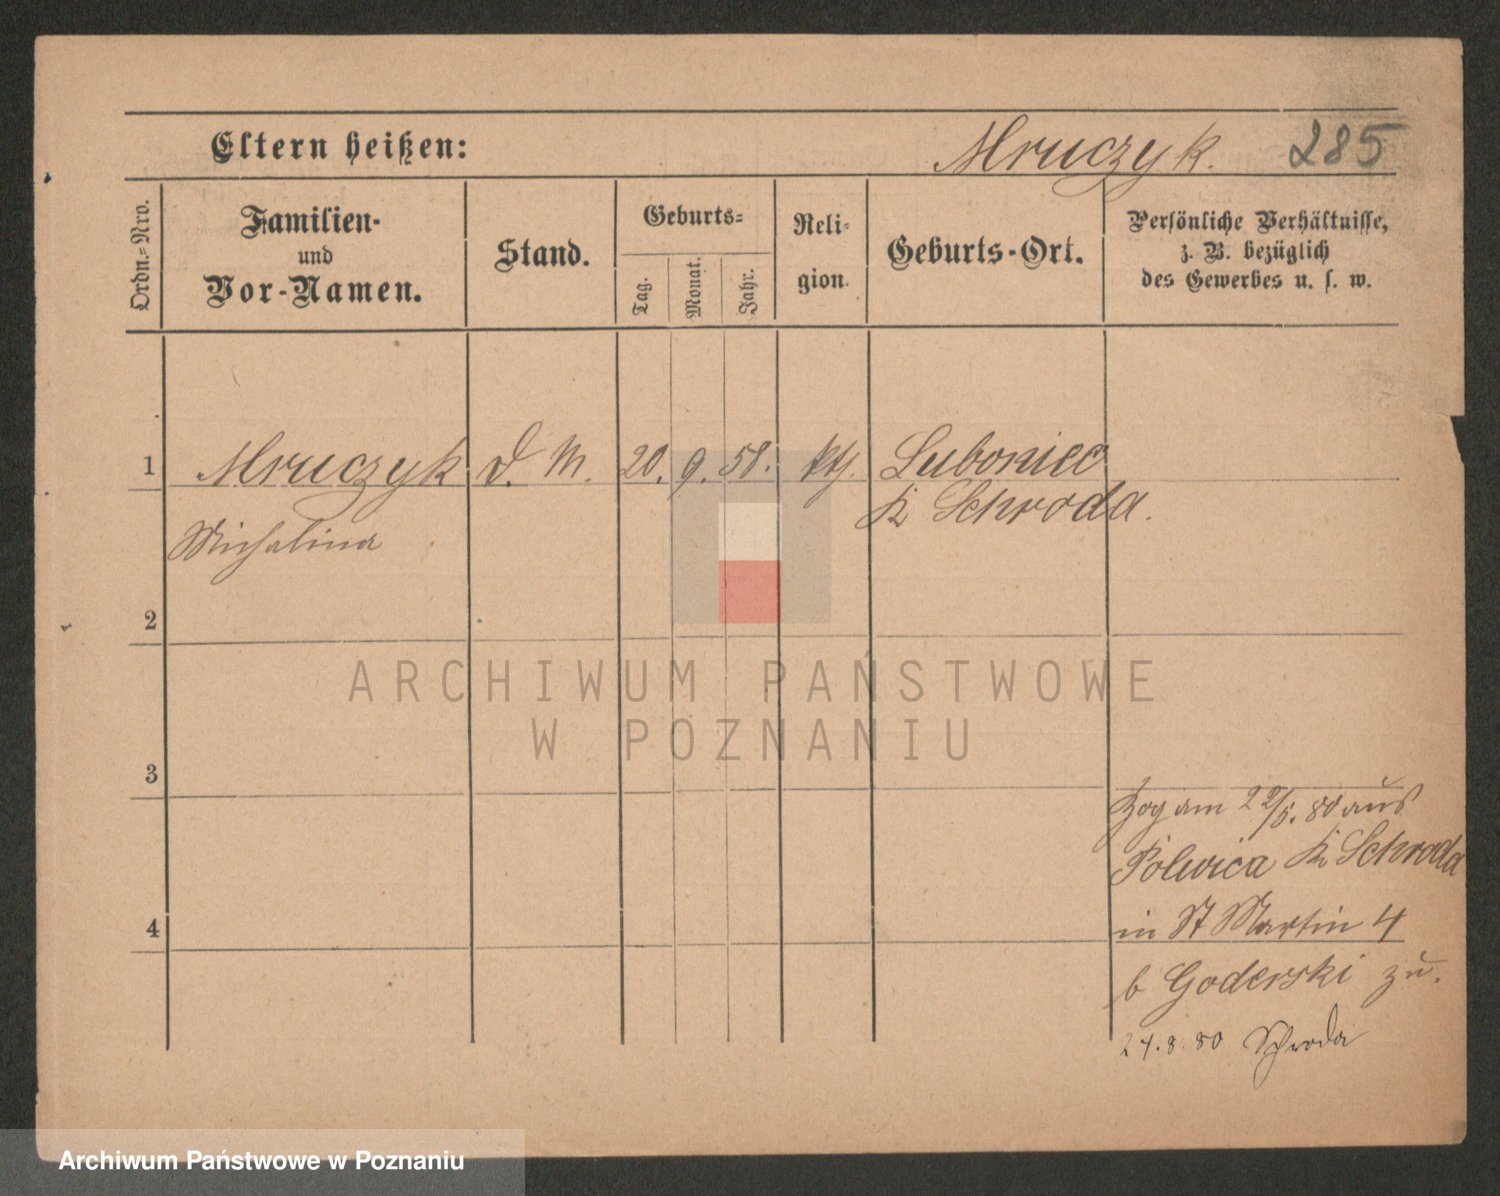 Eltern heißen:
Mruczyk. 285
Ordn.-Nro.
Familien-
und
Vor-Namen.
Stand.
Geburts-
Tag.
Monat.
Jahr.
Reli-
gion.
Geburts-Ort.
Persönliche Verhältnisse,
z. B. bezüglich
des Gewerbes u. s. w.
1 Mruczyk d. M. 20. 9. 58. kth. Luboniec
K Schroda.
Michalina
2
3
Zog am 22/5. 80 aus
Polwica K Schroda
in St Martin 4
4
b Goderski zu.
27.8.80 Schroda
ARCHIWUM PAŃSTWOWE
W POZNANIU
Archiwum Państwowe w Poznaniu